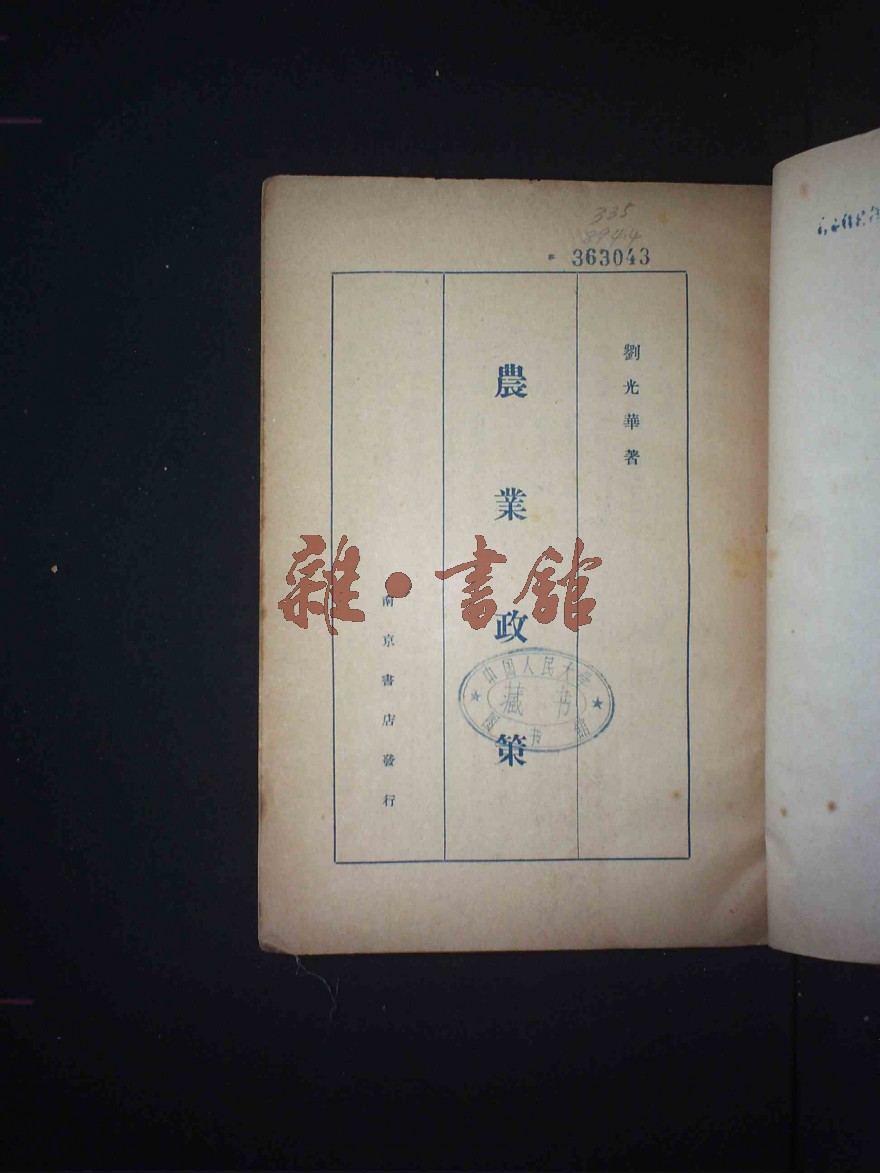 335
894.4
363043
劉光華著
農業政策
南京書店發行
雜·書館
中国人民大学
藏书
图书馆